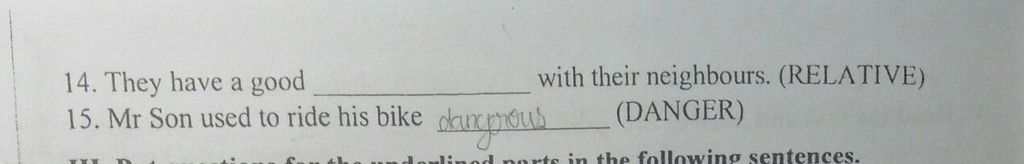 14. They have a good ____________ with their neighbours. (RELATIVE)
15. Mr Son used to ride his bike dangrous____ (DANGER)
underlined parts in the following sentences.